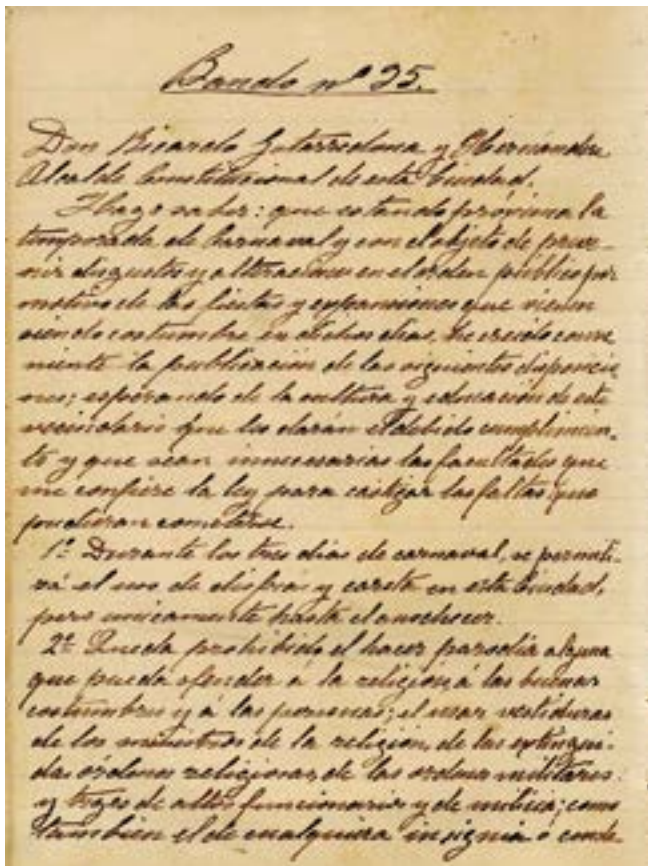 Bando nº 25.
Don Ricardo y Hernández
Alcalde Constitucional de esta Ciudad.
Hago saber: que estando próxima la
temporada de Carnaval y con el objeto de preve-
nir disgustos y alteraciones en el orden público por
motivo de las fiestas y expansiones que vienen
siendo costumbre en dichos dias, he creido conve
niente la publicación de las siguientes disposicio
nes; esperando de la cultura y educación de este
vecindario que les darán el debido cumplimien-
to y que sean innecesarias las facultades que
me confiere la ley para castigar las faltas que
pudieran cometerse.
1ª Durante los tres dias de carnaval, se permiti-
rá el uso de disfraz y careta en esta Ciudad,
pero unicamente hasta el anochecer.
2ª Queda prohibido el hacer parodia alguna
que pueda ofender a la religion, á las buenas
costumbres y á las personas; el usar vestiduras
de los ministros de la religion, de las extingui-
das órdenes religiosas, de las ordenes militares
y trages de altos funcionarios y de milicia; como
tambien el de cualquiera insignia ó conde-